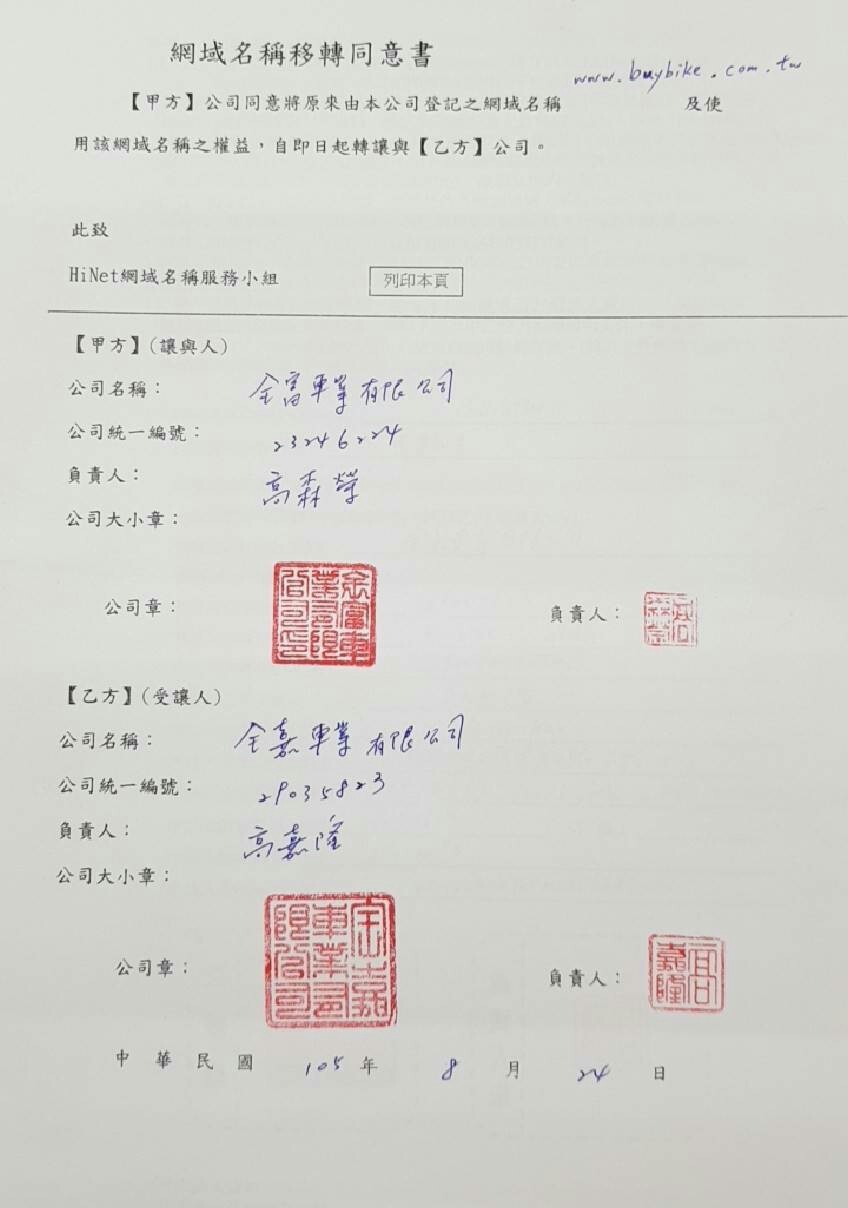 網域名稱移轉同意書
【甲方】公司同意將原來由本公司登記之網域名稱 www.buybike.com.tw 及使
用該網域名稱之權益,自即日起轉讓與【乙方】公司。
此致
HiNet網域名稱服務小組 列印本頁
【甲方】(讓與人)
公司名稱: 全富車業有限公司
公司統一編號: 23246224
負責人: 高森榮
公司大小章:
公司章: 負責人:
【乙方】(受讓人)
公司名稱: 全嘉車業有限公司
公司統一編號: 29035823
負責人: 高嘉隆
公司大小章:
公司章: 負責人: 高嘉隆
中華民國 105 年 8 月 24 日